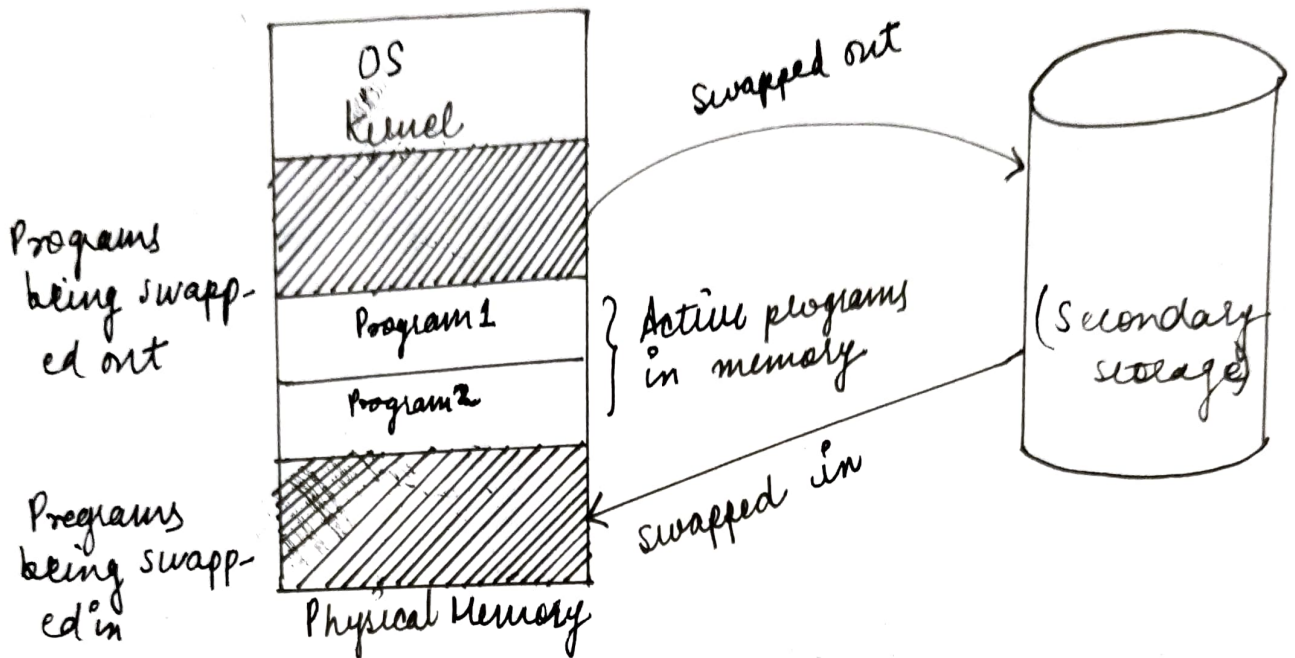 OS
Kernel
swapped out
Programs
being swapp-
ed out
Program 1
Program 2
} Active programs
in memory
(Secondary
storage)
swapped in
Programs
being swapp-
ed in
Physical Memory